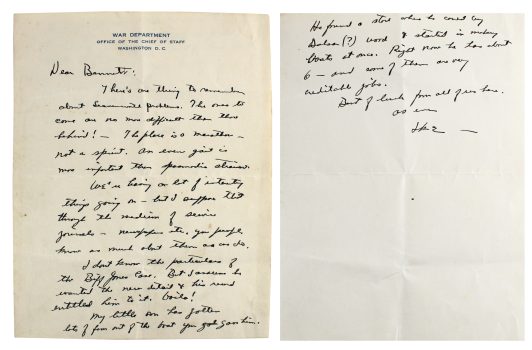 WAR DEPARTMENT
OFFICE OF THE CHIEF OF STAFF
WASHINGTON D.C.
Dear Bennett:
There's one thing to remember
about Leavenworth problems. The ones to
come are no more difficult than those
behind! — The place is a marathon —
not a sprint. An even gait is
more important than spasmodic strains.
We're having a lot of interesting
things going on — but I suppose that
through the medium of service
journals — newspapers etc. you people
know as much about them as we do.
I don't know the particulars of
the Biff Jones Case. But I assume he
wanted the new detail & his record
entitled him to it. Voila!
My little son has gotten
lots of fun out of the boat you gave him.
He found a store where he could buy
Balsa (?) wood & started in making
boats at once. Right now he has about
6 — and some of them are very
creditable jobs.
Best of luck from all of us here.
as ever
Ike —